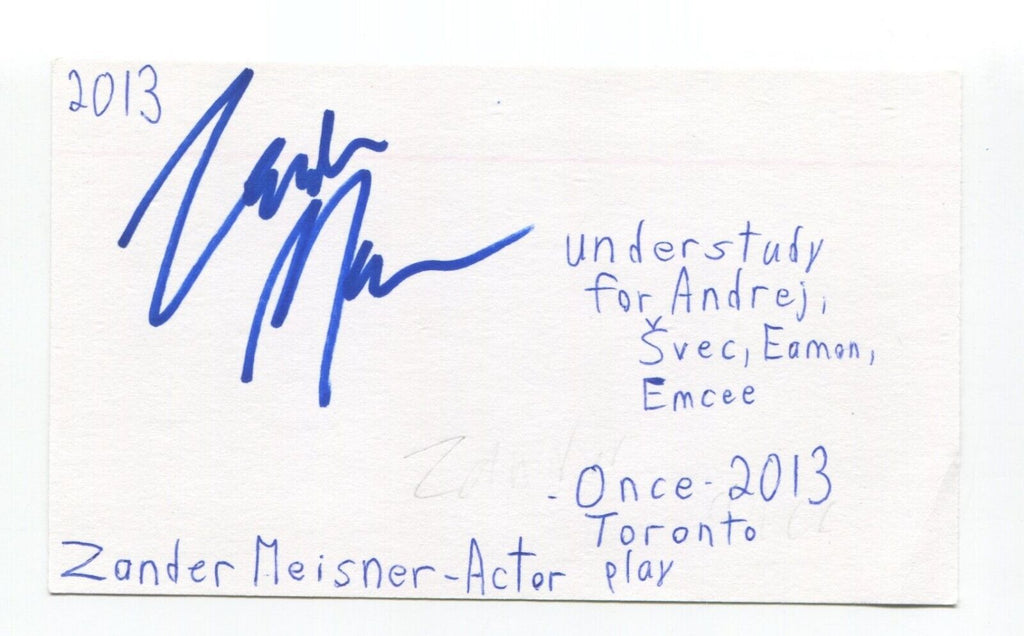 2013
understudy
for Andrej,
Švec, Eamon,
Emcee
- Once - 2013
Toronto
play
Zander Meisner - Actor